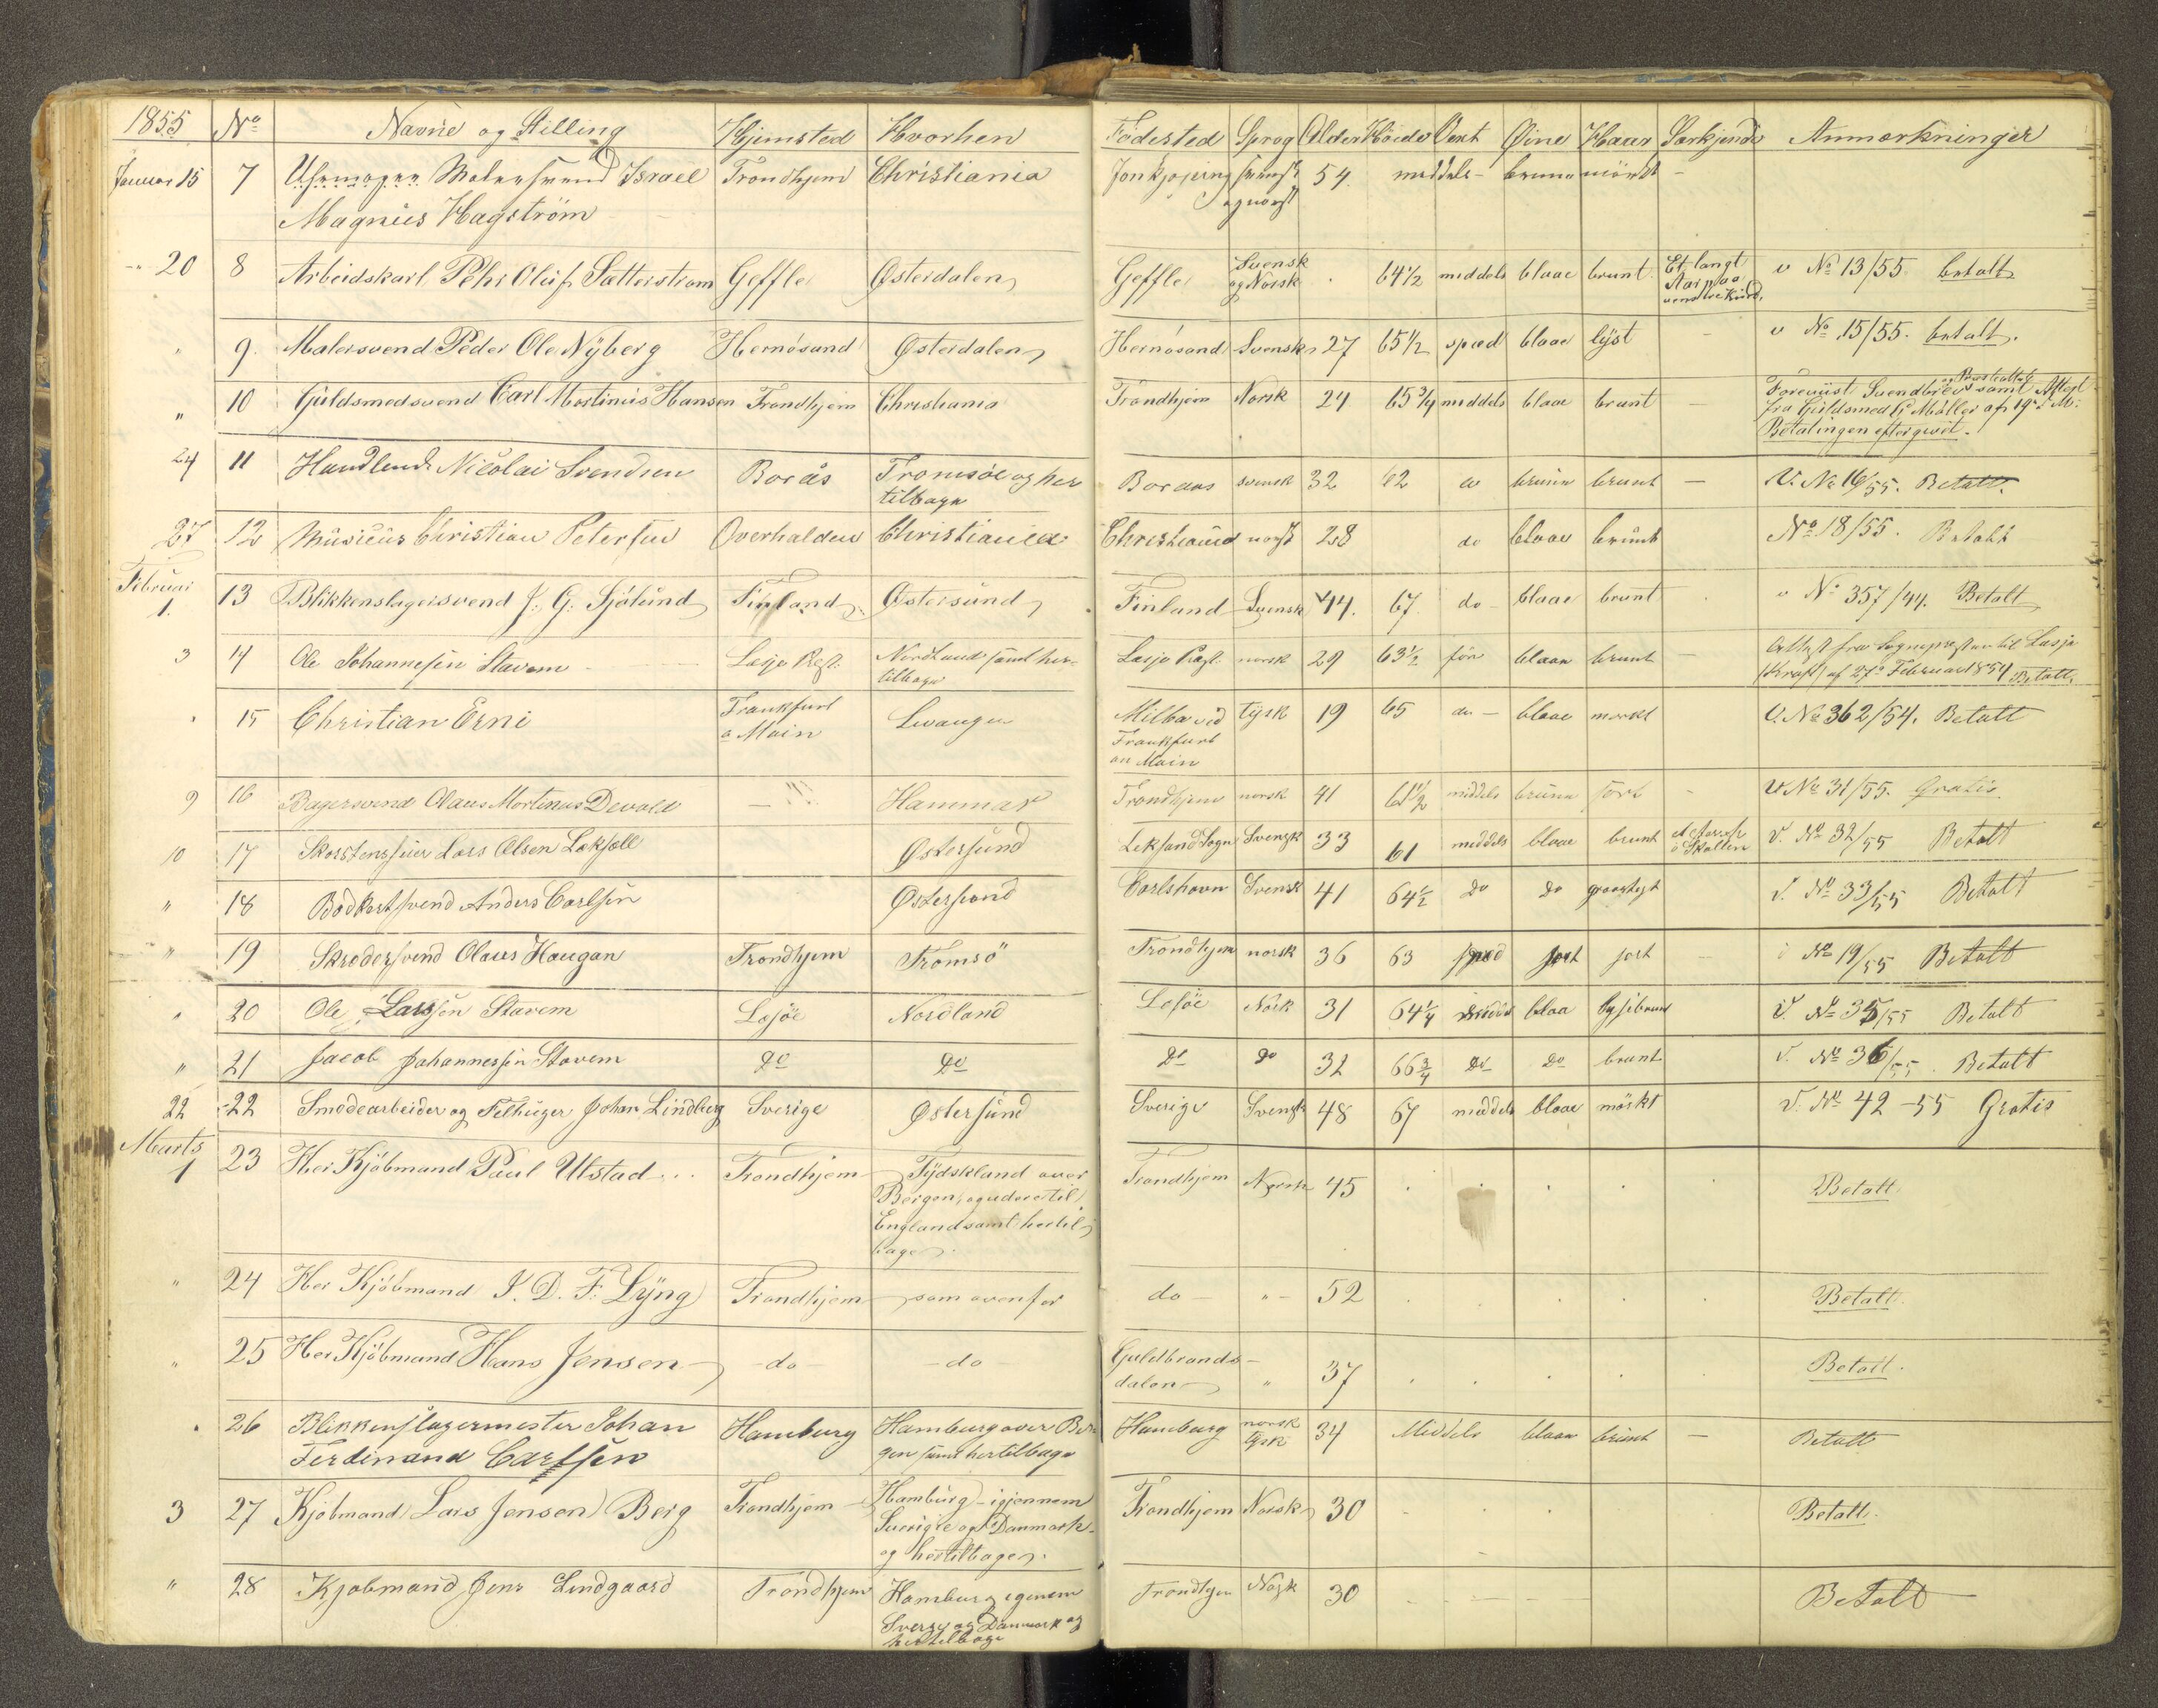 1855 No Navne og Stilling Hjemsted Hvorhen Födested Sprog Alder Höide Vext Øine Haar Særkjende Anmærkninger
Januar 15 7 Malersvend Israel Trondhjem Christiania Jonkjøping svensk 54 middels - brune mörkt -
Magnus Hagström og norsk
20 8 Arbeidskarl Pehr Oluf Sætterstrom Geffle Østerdalen Geffle Svensk og Norsk 64 1/2 middels blaae brunt Et langt Ar paa venstre Kind. v No 13/55 betalt
" 9. Malersvend Peder Ole Nÿberg Hernösand Østerdalen Hernösand Svensk 27 65 1/2 spæd blaae lÿst - v No 15/55. betalt.
" 10 Guldsmedsvend Carl Mortinus Hansen Trondhjem Christiania Trondhjem Norsk 24 65 3/4 middels blaae brunt - Foreviist Svendbrev samt Attest
fra Guldsmed G Møller af 19 d. M.
Betalingen eftergivet.
24 11 Handlende Nicolai Svendsen Borås Tromsöe og her Boraas svensk 32 62 do brune brunt - V. No 16/55. Betalt.
tilbage
27 12 Musicus Christian Petersen Overhalden Christiania Christiania norsk 28 do blaae brunt No 18/55. Betalt
Februar
1. 13 Blikkenslagersvend J. G. Sjölund Finland Østersund Finland Svensk 44. 67 do blaae brunt v No 357/44. Betalt
3 14 Ole Johannesen Stavem Lesje Præst. Nordland samt her- Lesje Præst. norsk 29 63 1/2 för blaae brunt - Attest fra Sognepresten til Lesje
tilbage (Kraft) af 27 Februar 1854 Betalt.
" 15 Christian Erni Frankfurt Levanger Milba ved tÿsk 19 65 do - blaae morkt V. No 362/54. Betalt
a Main Frankfurt
an Main
9 16 Bagersvend Olaus Mortinus Devold - Hammar Trondhjem norsk 41 61 1/2 middels brune sort - V No 31/55. Gratis
10 17 Skorstensfeier Lars Olsen Leksell Østersund Leksand Sogn Svensk 33 61 middels blaae brunt et Ar V. No 32/55 Betalt
18 Bödkersvend Anders Carlsen Østersund Carlshavn Svensk 41 64 1/2 do do V. No 33/55 Betalt
" 19 Skrædersvend Olaus Haugan Trondhjem Tromsö Trondhjem norsk 36 63 spæd sort sort - No 19/55 Betalt
" 20 Ole Larsen Stavem Lesjöe Nordland Lesöe Norsk 31 64 1/4 middel blaa lysebrunt V. No 35/55 Betalt
" 21 Jacob Johannessen Stavem do do do do 32 66 3/4 do do brunt V. No 36/55. Betalt
22 22 Smedearbeider og Filhugger Johan Lindberg Sverige Østersund Sverige Svensk 48 67 middels blaae mörkt V. No 42-55 Gratis
Marts
1 23 Her Kjöbmand Paul Ulstad Trondhjem Tÿdskland over Trondhjem Norsk 45 Betalt
Bergen, og derefter til
England samt hertil-
bage
" 24 Her Kjöbmand J. D. F. Lÿng Trondhjem som ovenfor do - " - 52 Betalt.
" 25 Her Kjöbmand Hans Jensen - do - - do - Guldbrands- " 37 Betalt.
dalen
26 Blikkenslagermester Johan Hamburg Hamburg over Ber Hamburg norsk tysk 34 Middels blaae brunt - Betalt
Ferdinand Carlsen gen samt hertilbage
3 27 Kjöbmand Lars Jensen Berg Trondhjem Hamburg - igjennem Trondhjem Norsk 30 Betalt.
Sverige og Danmark
og hertilbage.
" 28 Kjøbmand Jens Lindgaard Trondhjem Hamburg igenem Trondhjem Norsk 30 Betalt
Sverge og Danmark og
hertilbage